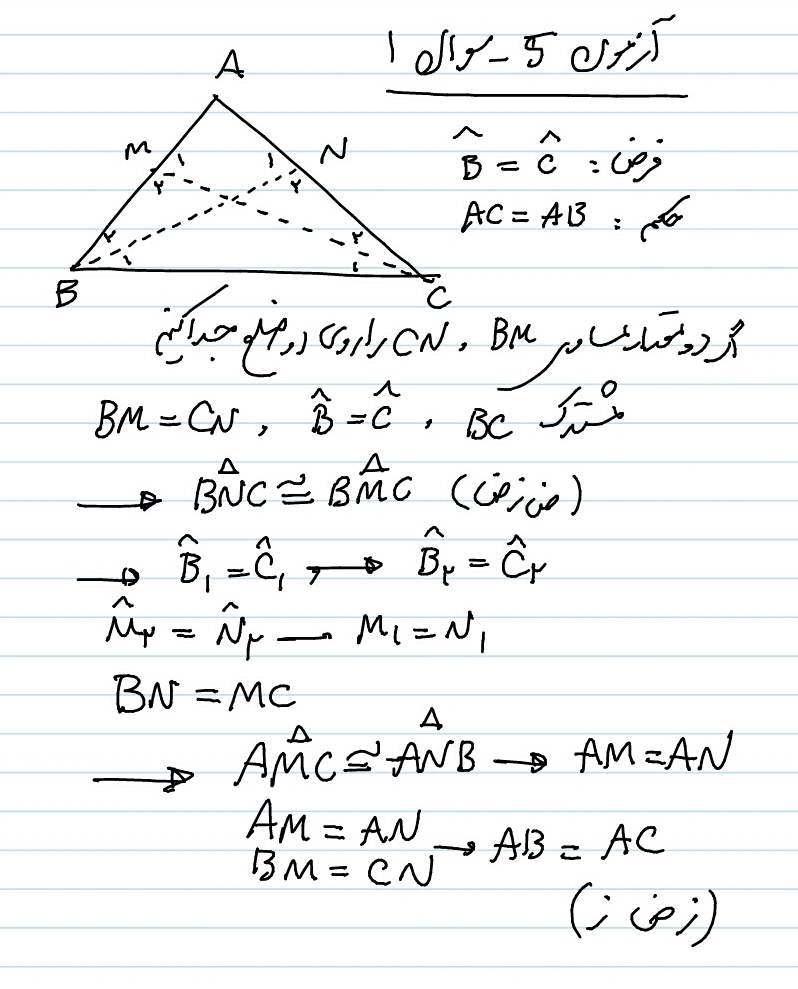 آزمون 5 - سوال 1
A
M N
۱ ۱
۲ ۲
۲ ۲
۱ ۱
B C
فرض : B̂ = Ĉ
حکم : AC = AB
اگر دو مقدار مساوی BM و CN را روی دو ضلع جدا کنیم
BM = CN , B̂ = Ĉ , BC مشترک
→ BNC ≅ BMC (ض ز ض)
→ B̂₁ = Ĉ₁ , → B̂۲ = Ĉ۲
M̂۲ = N̂۲ — M₁ = N₁
BN = MC
→ AMC ≅ ANB → AM = AN
AM = AN
BM = CN → AB = AC
(ز ض ز)